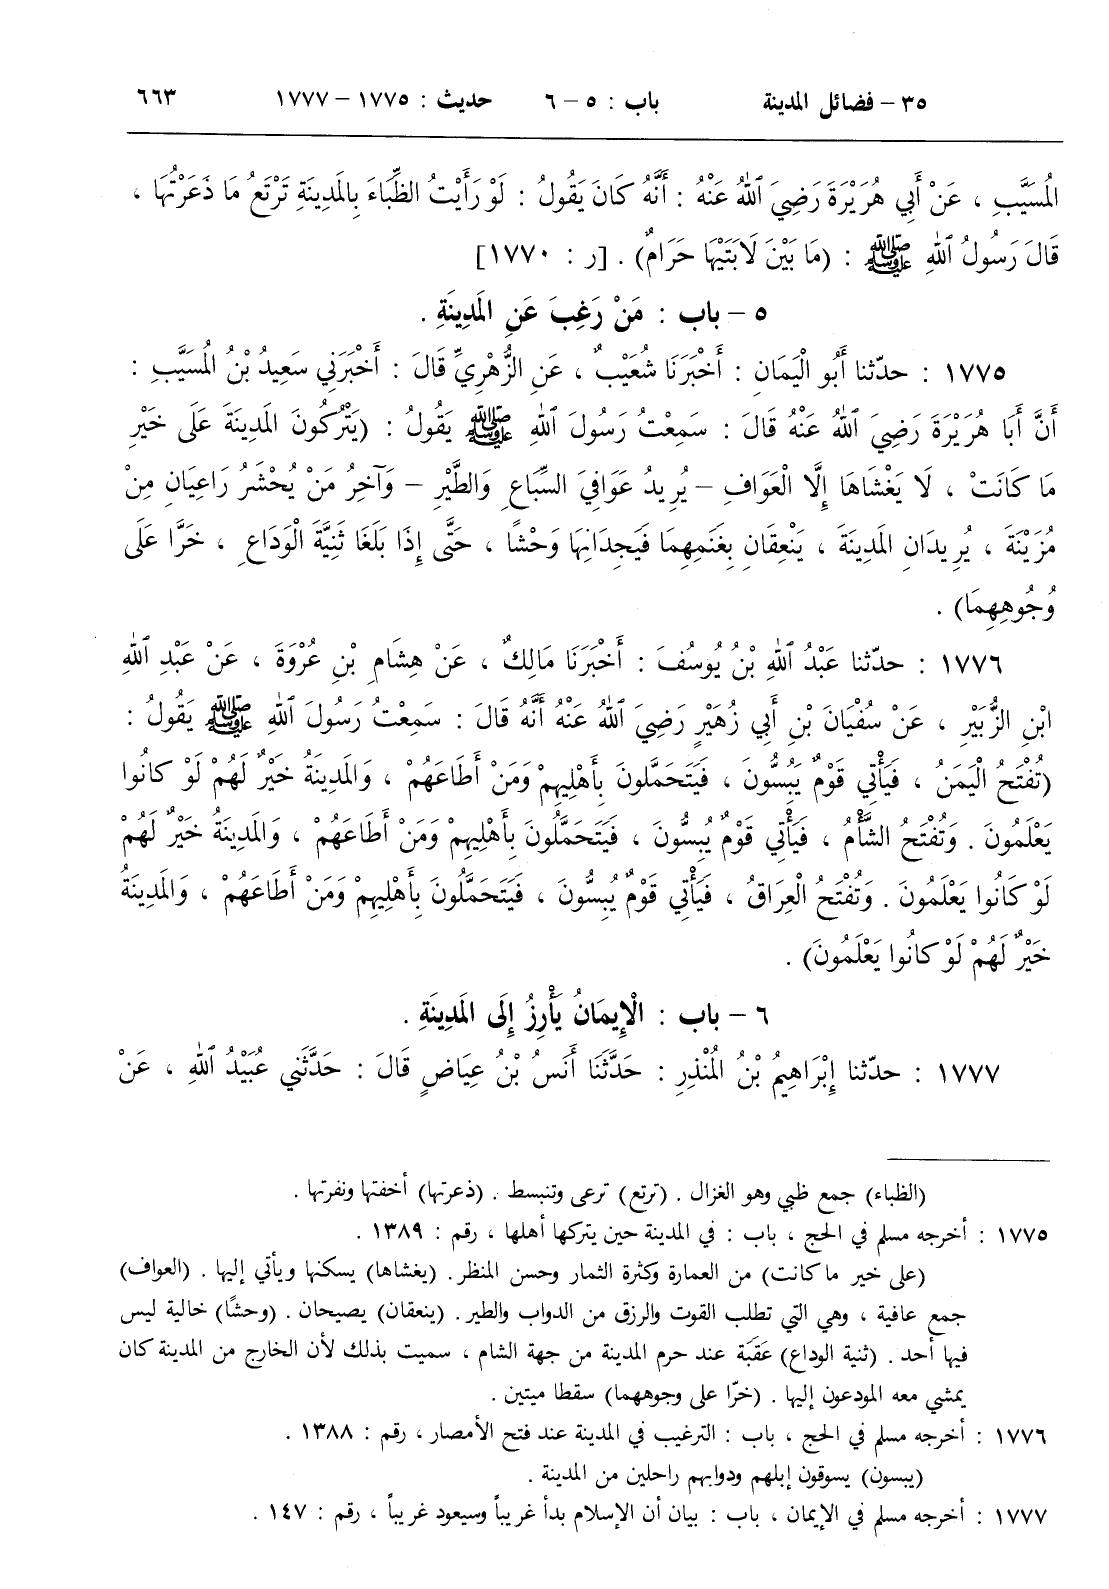 ٣٥ – فضائل المدينة باب : ٥ – ٦ حديث : ١٧٧٥ – ١٧٧٧ ٦٦٣
الْمُسَيَّبِ ، عَنْ أَبِي هُرَيْرَةَ رَضِيَ ٱللهُ عَنْهُ : أَنَّهُ كَانَ يَقُولُ : لَوْ رَأَيْتُ الظِّبَاءَ بِالْمَدِينَةِ تَرْتَعُ مَا ذَعَرْتُهَا ،
قَالَ رَسُولُ ٱللهِ ﷺ : (مَا بَيْنَ لَابَتَيْهَا حَرَامٌ) . [ر : ١٧٧٠]
٥ – باب : مَنْ رَغِبَ عَنِ الْمَدِينَةِ .
١٧٧٥ : حدّثنا أَبُو الْيَمَانِ : أَخْبَرَنَا شُعَيْبٌ ، عَنِ الزُّهْرِيِّ قَالَ : أَخْبَرَنِي سَعِيدُ بْنُ الْمُسَيَّبِ :
أَنَّ أَبَا هُرَيْرَةَ رَضِيَ ٱللهُ عَنْهُ قَالَ : سَمِعْتُ رَسُولَ ٱللهِ ﷺ يَقُولُ : (يَتْرُكُونَ الْمَدِينَةَ عَلَى خَيْرِ
مَا كَانَتْ ، لَا يَغْشَاهَا إِلَّا الْعَوَافِ – يُرِيدُ عَوَافِيَ السِّبَاعِ وَالطَّيْرِ – وَآخِرُ مَنْ يُحْشَرُ رَاعِيَانِ مِنْ
مُزَيْنَةَ ، يُرِيدَانِ الْمَدِينَةَ ، يَنْعِقَانِ بِغَنَمِهِمَا فَيَجِدَانِهَا وَحْشًا ، حَتَّى إِذَا بَلَغَا ثَنِيَّةَ الْوَدَاعِ ، خَرَّا عَلَى
وُجُوهِهِمَا) .
١٧٧٦ : حدّثنا عَبْدُ ٱللهِ بْنُ يُوسُفَ : أَخْبَرَنَا مَالِكٌ ، عَنْ هِشَامِ بْنِ عُرْوَةَ ، عَنْ عَبْدِ ٱللهِ
ابْنِ الزُّبَيْرِ ، عَنْ سُفْيَانَ بْنِ أَبِي زُهَيْرٍ رَضِيَ ٱللهُ عَنْهُ أَنَّهُ قَالَ : سَمِعْتُ رَسُولَ ٱللهِ ﷺ يَقُولُ :
(تُفْتَحُ الْيَمَنُ ، فَيَأْتِي قَوْمٌ يَبِسُّونَ ، فَيَتَحَمَّلُونَ بِأَهْلِيهِمْ وَمَنْ أَطَاعَهُمْ ، وَالْمَدِينَةُ خَيْرٌ لَهُمْ لَوْ كَانُوا
يَعْلَمُونَ . وَتُفْتَحُ الشَّأْمُ ، فَيَأْتِي قَوْمٌ يُبِسُّونَ ، فَيَتَحَمَّلُونَ بِأَهْلِيهِمْ وَمَنْ أَطَاعَهُمْ ، وَالْمَدِينَةُ خَيْرٌ لَهُمْ
لَوْ كَانُوا يَعْلَمُونَ . وَتُفْتَحُ الْعِرَاقُ ، فَيَأْتِي قَوْمٌ يُبِسُّونَ ، فَيَتَحَمَّلُونَ بِأَهْلِيهِمْ وَمَنْ أَطَاعَهُمْ ، وَالْمَدِينَةُ
خَيْرٌ لَهُمْ لَوْ كَانُوا يَعْلَمُونَ) .
٦ – باب : الْإِيمَانُ يَأْرِزُ إِلَى الْمَدِينَةِ .
١٧٧٧ : حدّثنا إِبْرَاهِيمُ بْنُ الْمُنْذِرِ : حَدَّثَنَا أَنَسُ بْنُ عِيَاضٍ قَالَ : حَدَّثَنِي عُبَيْدُ ٱللهِ ، عَنْ
(الظباء) جمع ظبي وهو الغزال . (ترتع) ترعى وتنبسط . (ذعرتها) أخفتها ونفرتها .
١٧٧٥ : أخرجه مسلم في الحج ، باب : في المدينة حين يتركها أهلها ، رقم : ١٣٨٩ .
(على خير ما كانت) من العمارة وكثرة الثمار وحسن المنظر . (يغشاها) يسكنها ويأتي إليها . (العواف)
جمع عافية ، وهي التي تطلب القوت والرزق من الدواب والطير . (ينعقان) يصيحان . (وحشًا) خالية ليس
فيها أحد . (ثنية الوداع) عَقَبَة عند حرم المدينة من جهة الشام ، سميت بذلك لأن الخارج من المدينة كان
يمشي معه المودعون إليها . (خرّا على وجوههما) سقطا ميتين .
١٧٧٦ : أخرجه مسلم في الحج ، باب : الترغيب في المدينة عند فتح الأمصار ، رقم : ١٣٨٨ .
(يبسون) يسوقون إبلهم ودوابهم راحلين من المدينة .
١٧٧٧ : أخرجه مسلم في الإيمان ، باب : بيان أن الإسلام بدأ غريباً وسيعود غريباً ، رقم : ١٤٧ .